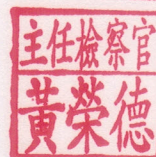 主任檢察官
黃榮德